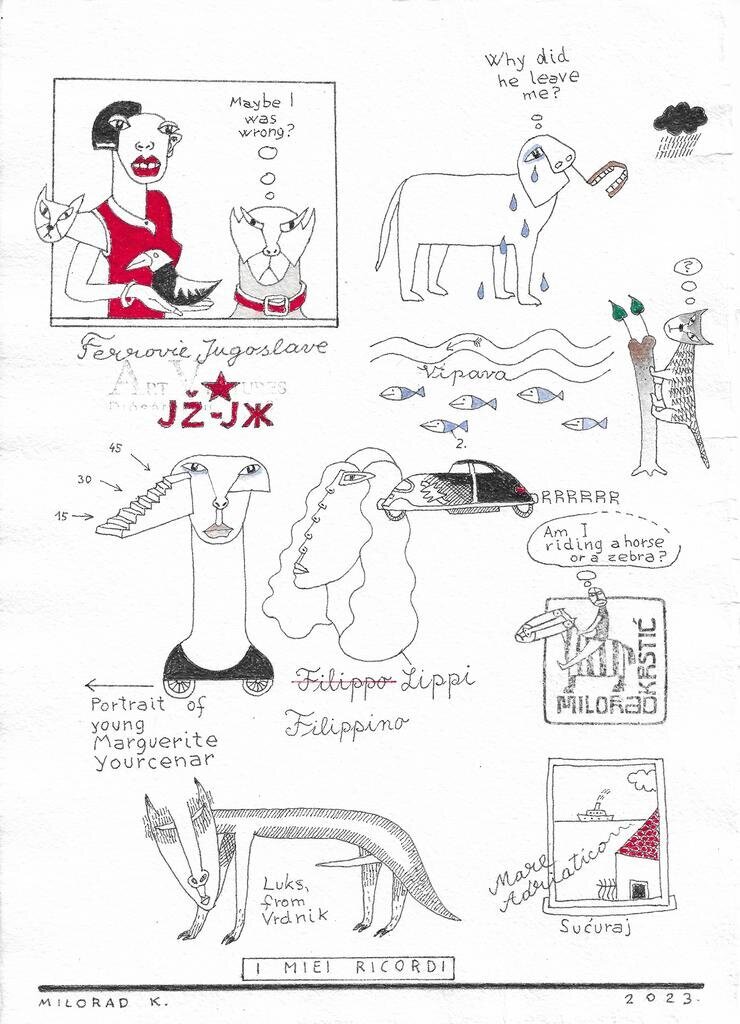 Why did
he leave
me?
Maybe I
was
wrong?
?
Ferrovie Jugoslave
JŽ-JЖ
Vipava
2.
45
30
15
ORRRRRR
Am I
riding a horse
or a zebra?
MILORAD KRSTIĆ
Filippo Lippi
Filippino
Portrait of
young
Marguerite
Yourcenar
Luks,
from
Vrdnik
Mare
Adriatico
Sućuraj
I MIEI RICORDI
MILORAD K.
2023.